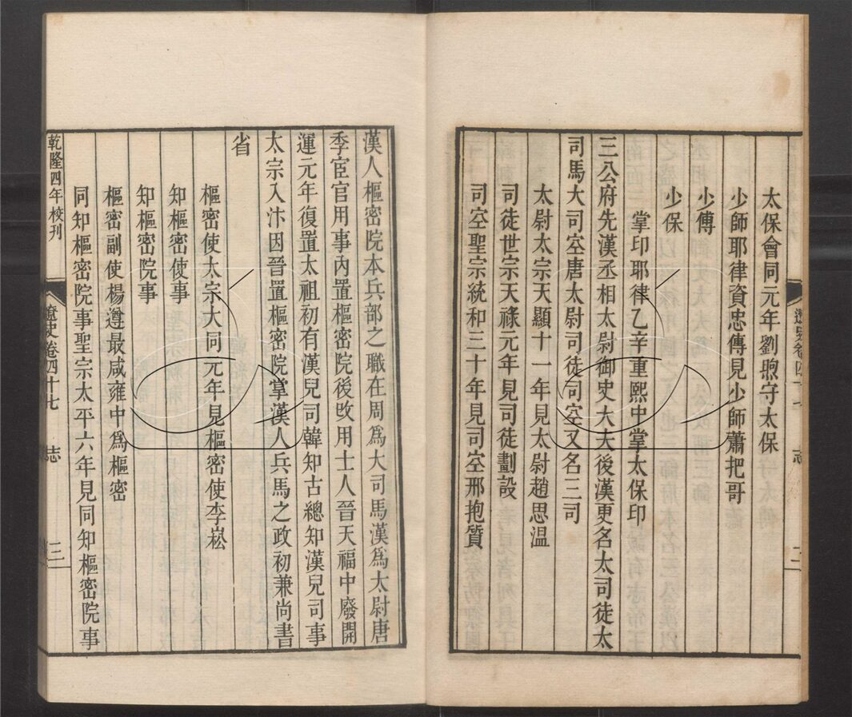 太保會同元年劉煦守太保
少師耶律資忠傳見少師蕭把哥
少傅
少保
掌印耶律乙辛重熙中掌太保印
三公府先漢丞相太尉御史大夫後漢更名太司徒太
司馬大司空唐太尉司徒司空又名三司
太尉太宗天顯十一年見太尉趙思溫
司徒世宗天祿元年見司徒劃設
司空聖宗統和三十年見司空邢抱質
遼史卷四十七 志 三
漢人樞密院本兵部之職在周爲大司馬漢爲太尉唐
季宦官用事內置樞密院後改用士人晉天福中廢開
運元年復置太祖初有漢兒司韓知古總知漢兒司事
太宗入汴因晉置樞密院掌漢人兵馬之政初兼尚書
省
樞密使太宗大同元年見樞密使李崧
知樞密使事
知樞密院事
樞密副使楊遵最咸雍中爲樞密
同知樞密院事聖宗太平六年見同知樞密院事
乾隆四年校刊 遼史卷四十七 志 三